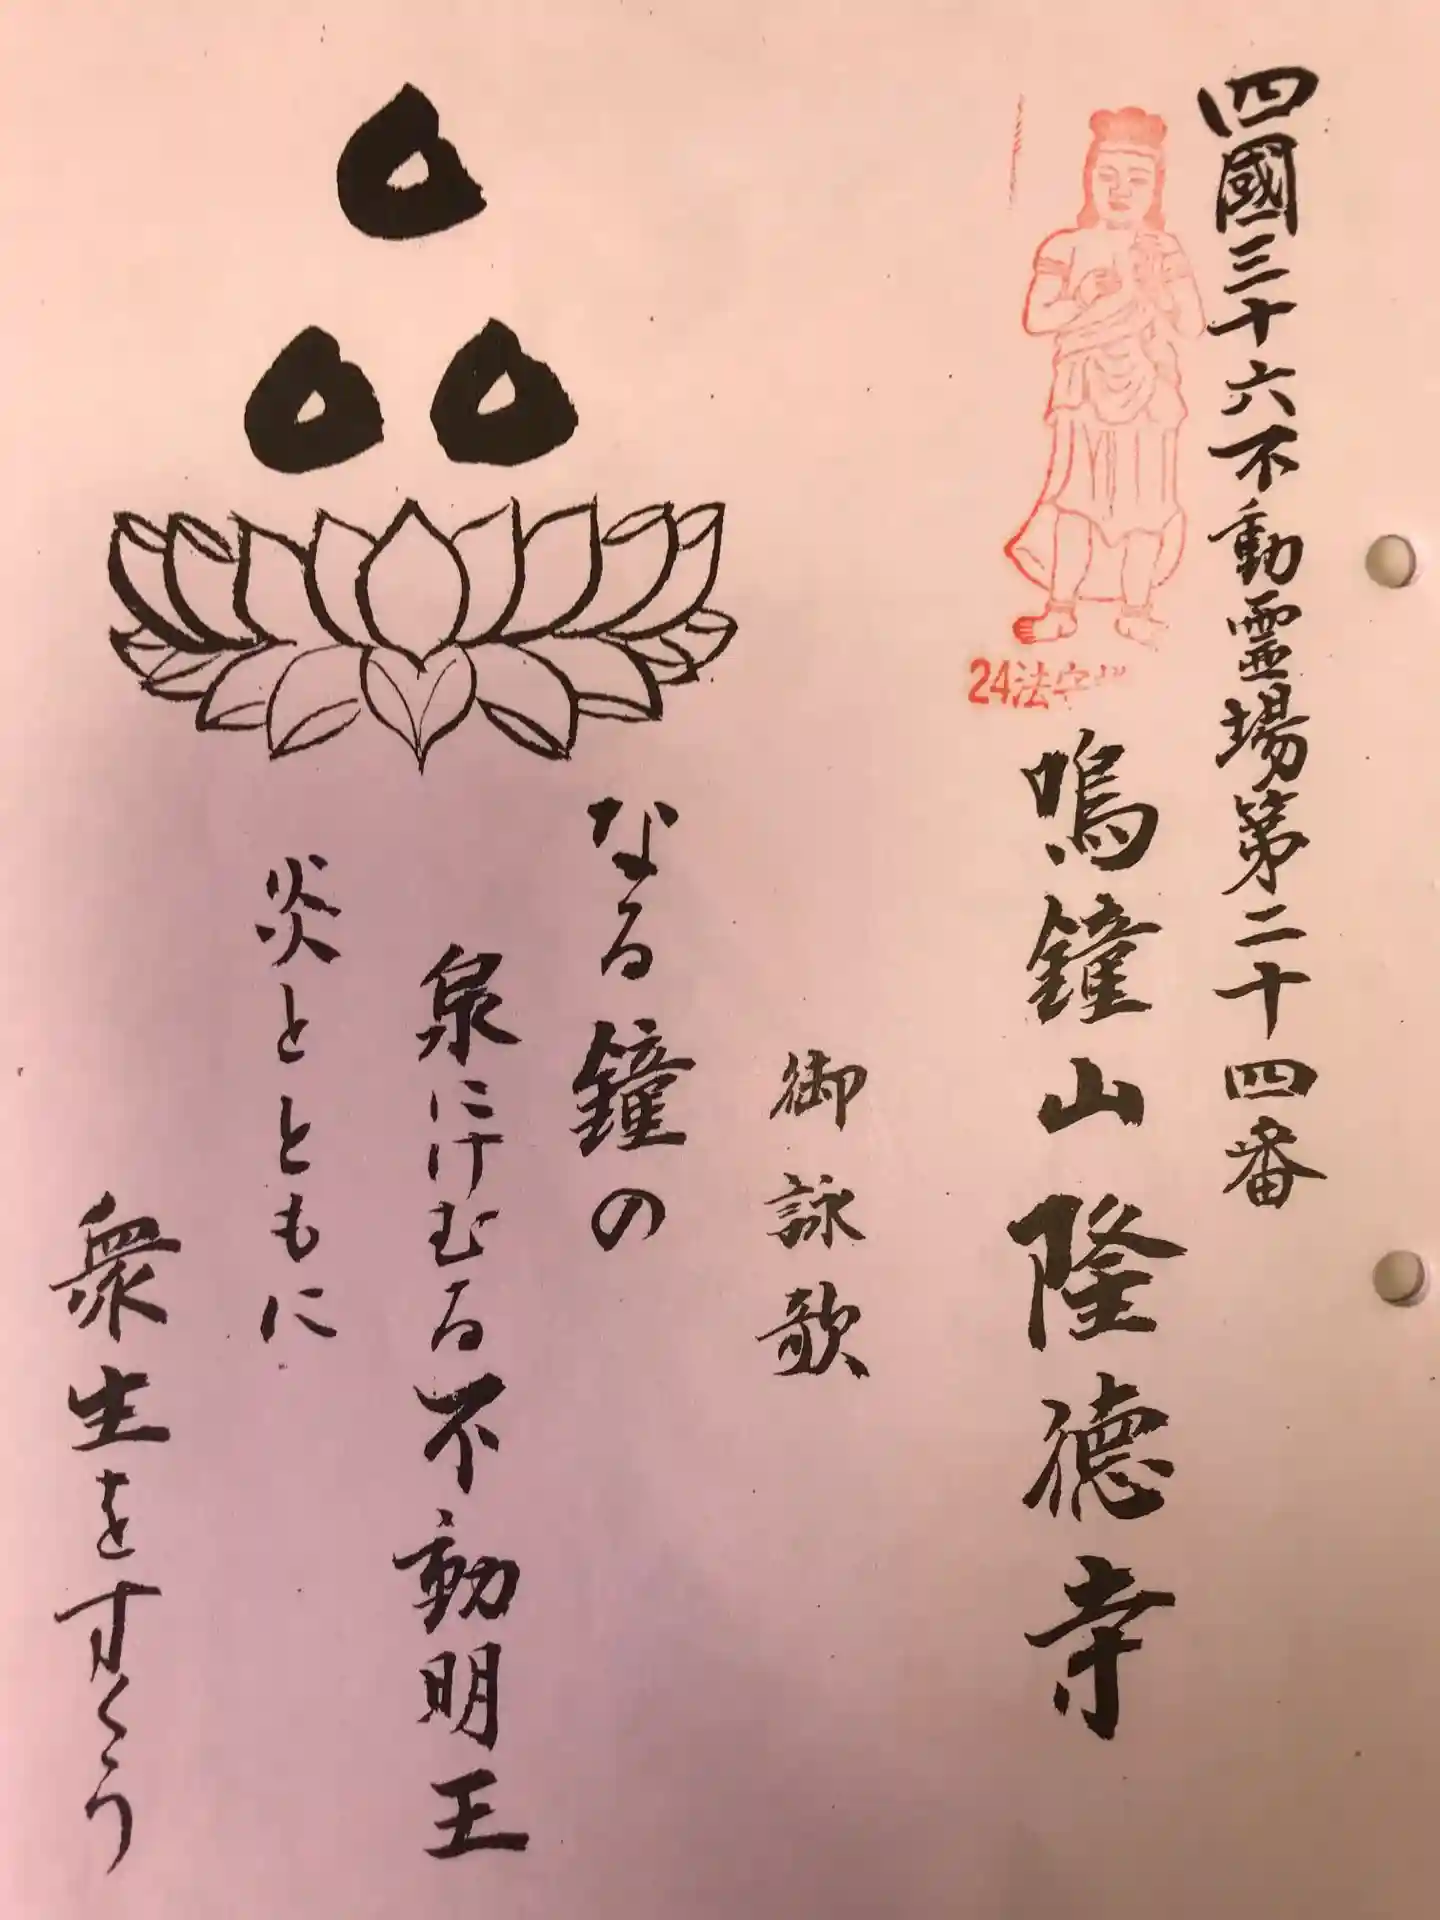 四國三十六不動霊場第二十四番
24法守
鳴鐘山 隆德寺
御詠歌
なる鐘の
泉にけむる不動明王
炎とともに
衆生をすくう